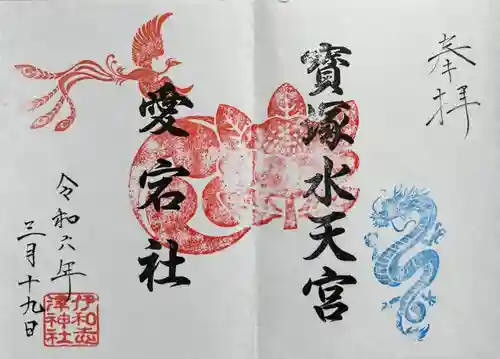 奉拝
寳塚水天宮
愛宕社
令和六年
三月十九日
伊和志
津神社